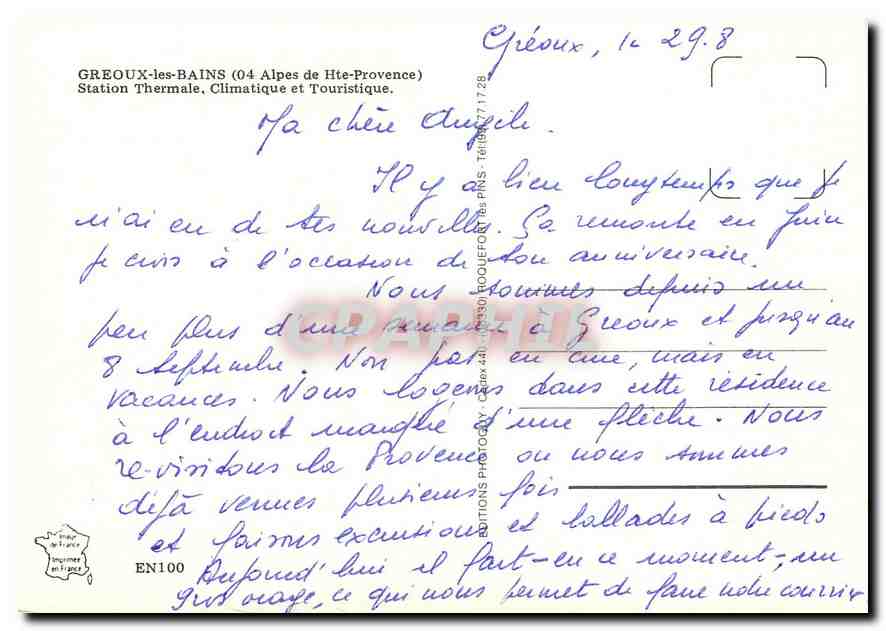 Gréoux, le 29.8
GREOUX-les-BAINS (04 Alpes de Hte-Provence)
Station Thermale, Climatique et Touristique.
Ma chère Angèle.
Il y a bien longtemps que je
n'ai eu de tes nouvelles. Ça remonte en Juin
je crois à l'occasion de ton anniversaire.
Nous sommes depuis un
peu plus d'une semaine à Gréoux et jusqu'au
8 septembre. Non pas en cure, mais en
vacances. Nous logeons dans cette résidence
à l'endroit marqué d'une flèche. Nous
re-visitons la Provence ou nous sommes
déjà venues plusieurs fois
et faisons excursions et ballades à pieds
Aujourd'hui il fait-en ce moment-, un
gros orage, ce qui nous permet de faire notre courrier
EDITIONS PHOTOGUY - Cedex 440 - (06330) ROQUEFORT les PINS - Tél. (93) 77 17 28
CPAPHIL
Imageur de France
Imprimée
en France
EN100